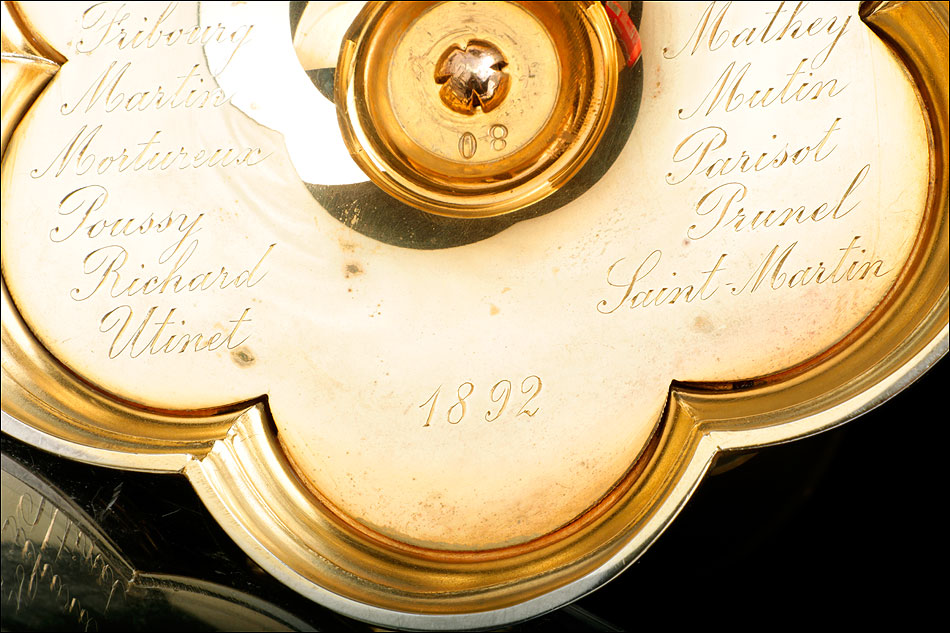 Fribourg
Martin
Mortureux
Poussy
Richard
Utinet
08
Mathey
Mutin
Parisot
Prunel
Saint-Martin
1892